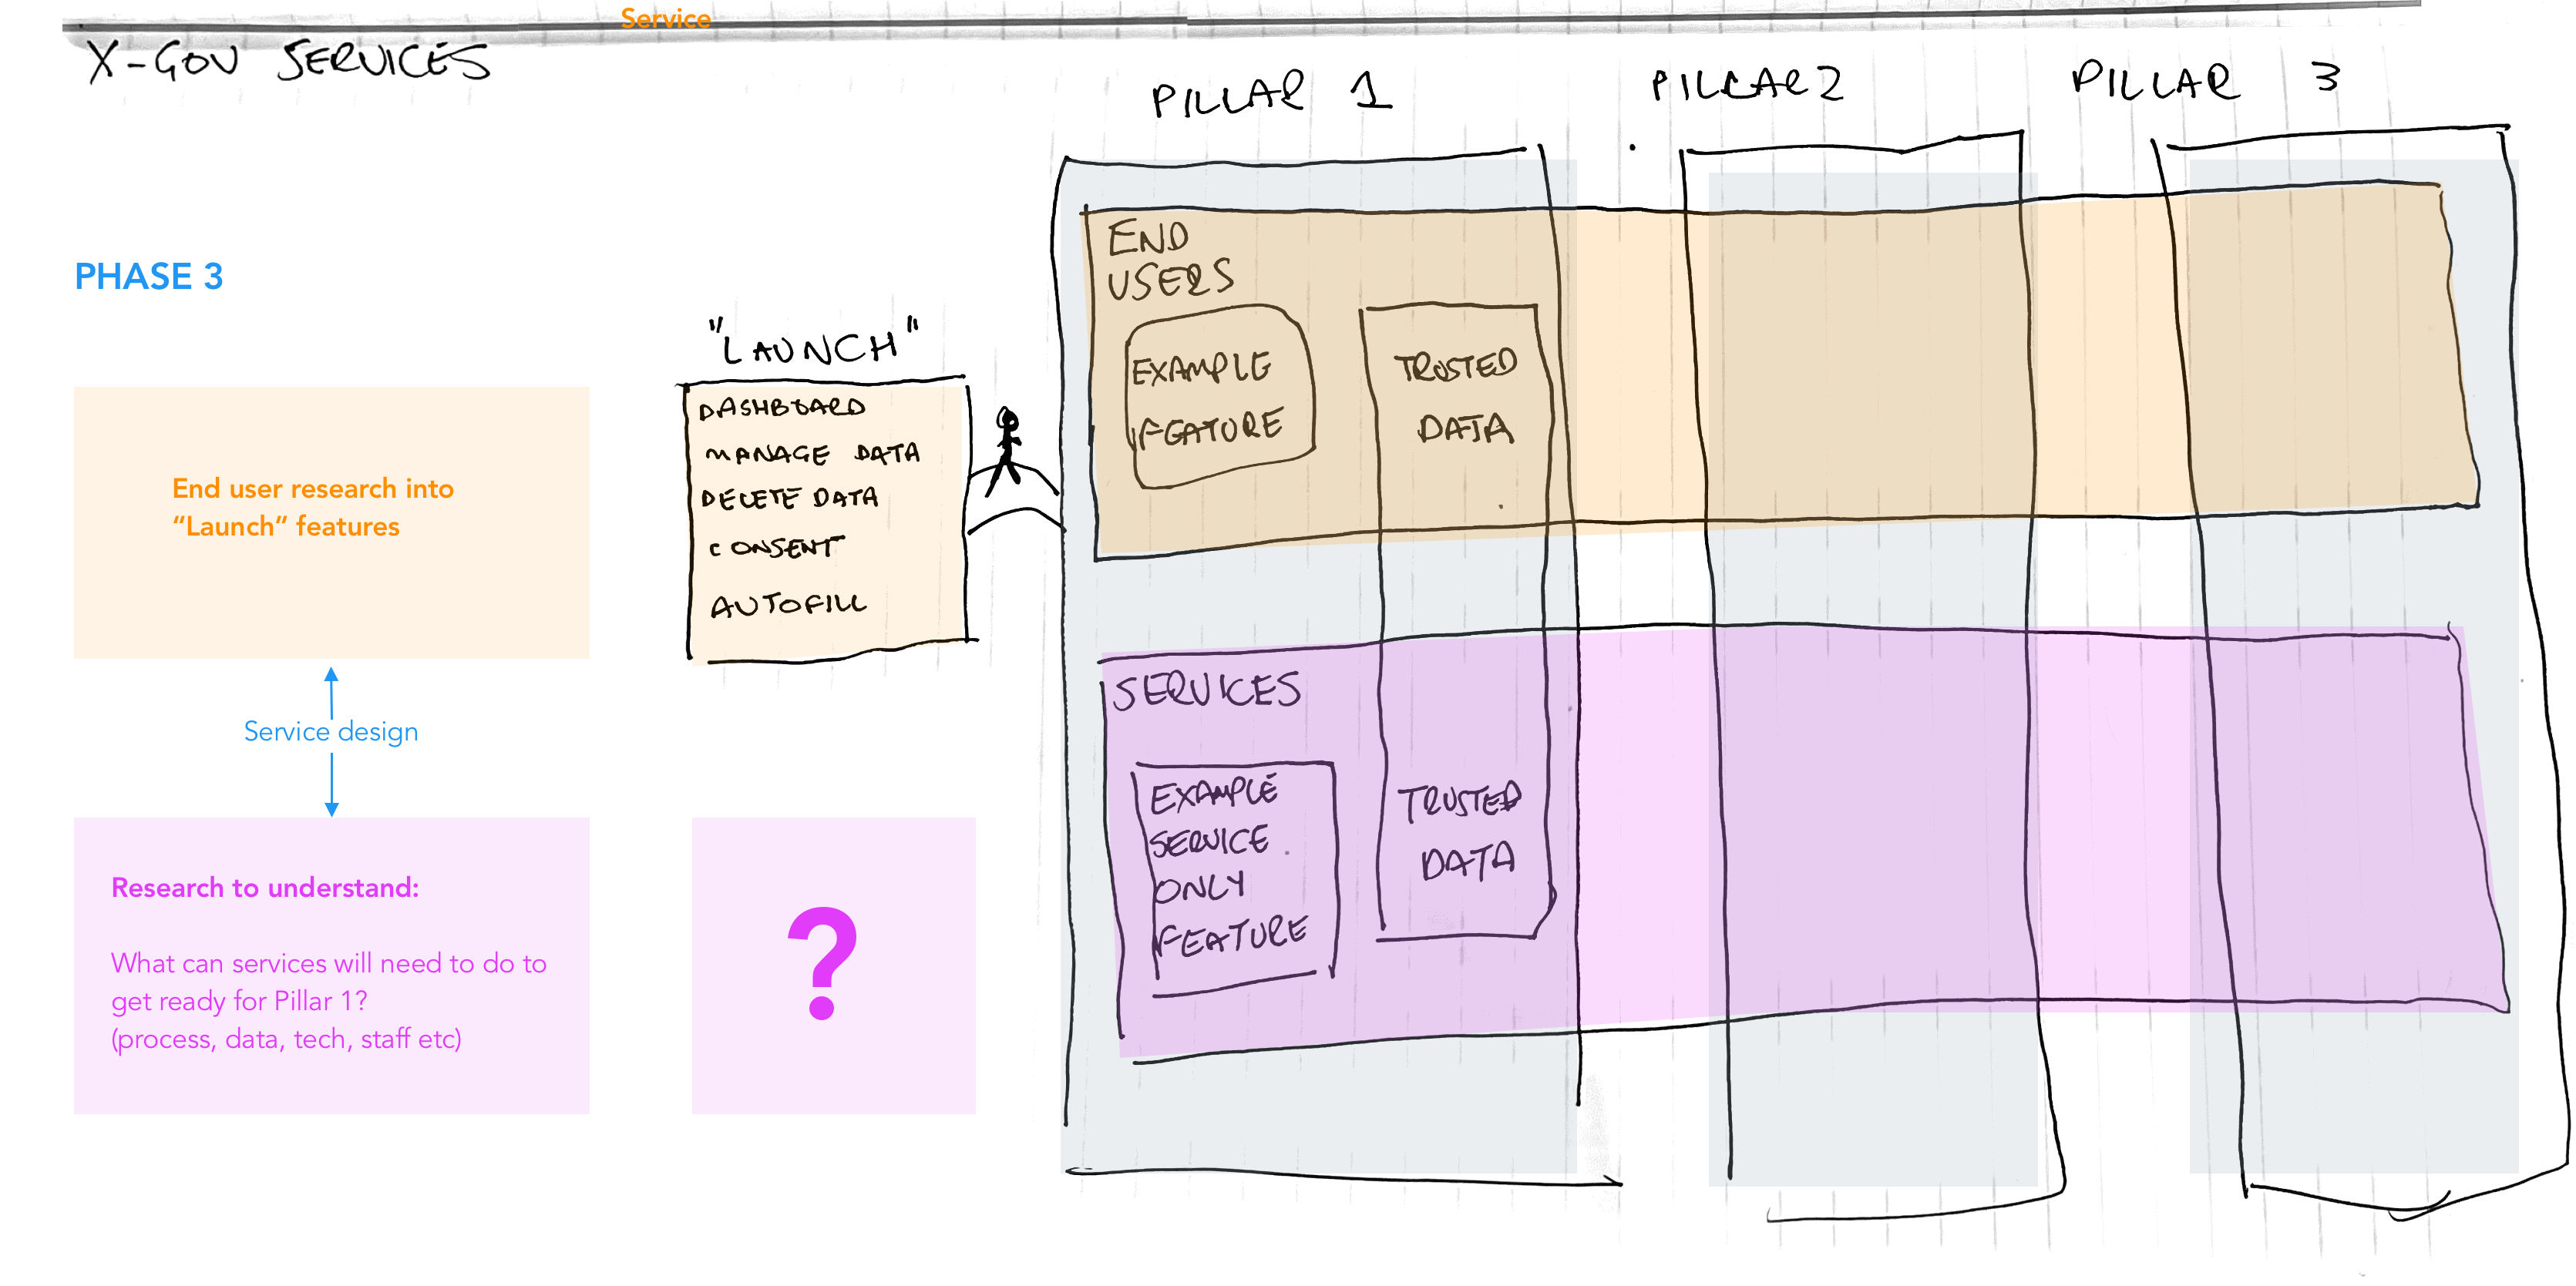 Service
X-GOV SERVICES
PILLAR 1
PILLAR 2
PILLAR 3
PHASE 3
End user research into
“Launch” features
Service design
Research to understand:
What can services will need to do to
get ready for Pillar 1?
(process, data, tech, staff etc)
"LAUNCH"
DASHBOARD
MANAGE DATA
DELETE DATA
CONSENT
AUTOFILL
?
END
USERS
EXAMPLE
FEATURE
TRUSTED
DATA
SERVICES
EXAMPLE
SERVICE
ONLY
FEATURE
TRUSTED
DATA